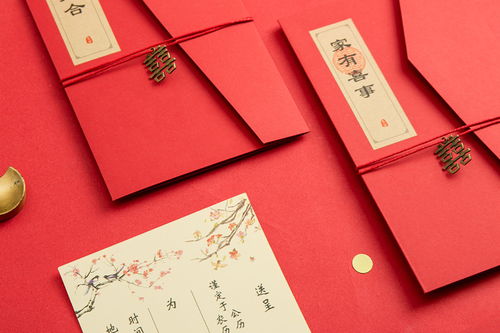 合
家有喜事
囍
囍
送呈
谨定于公历
农历
为
时间
地